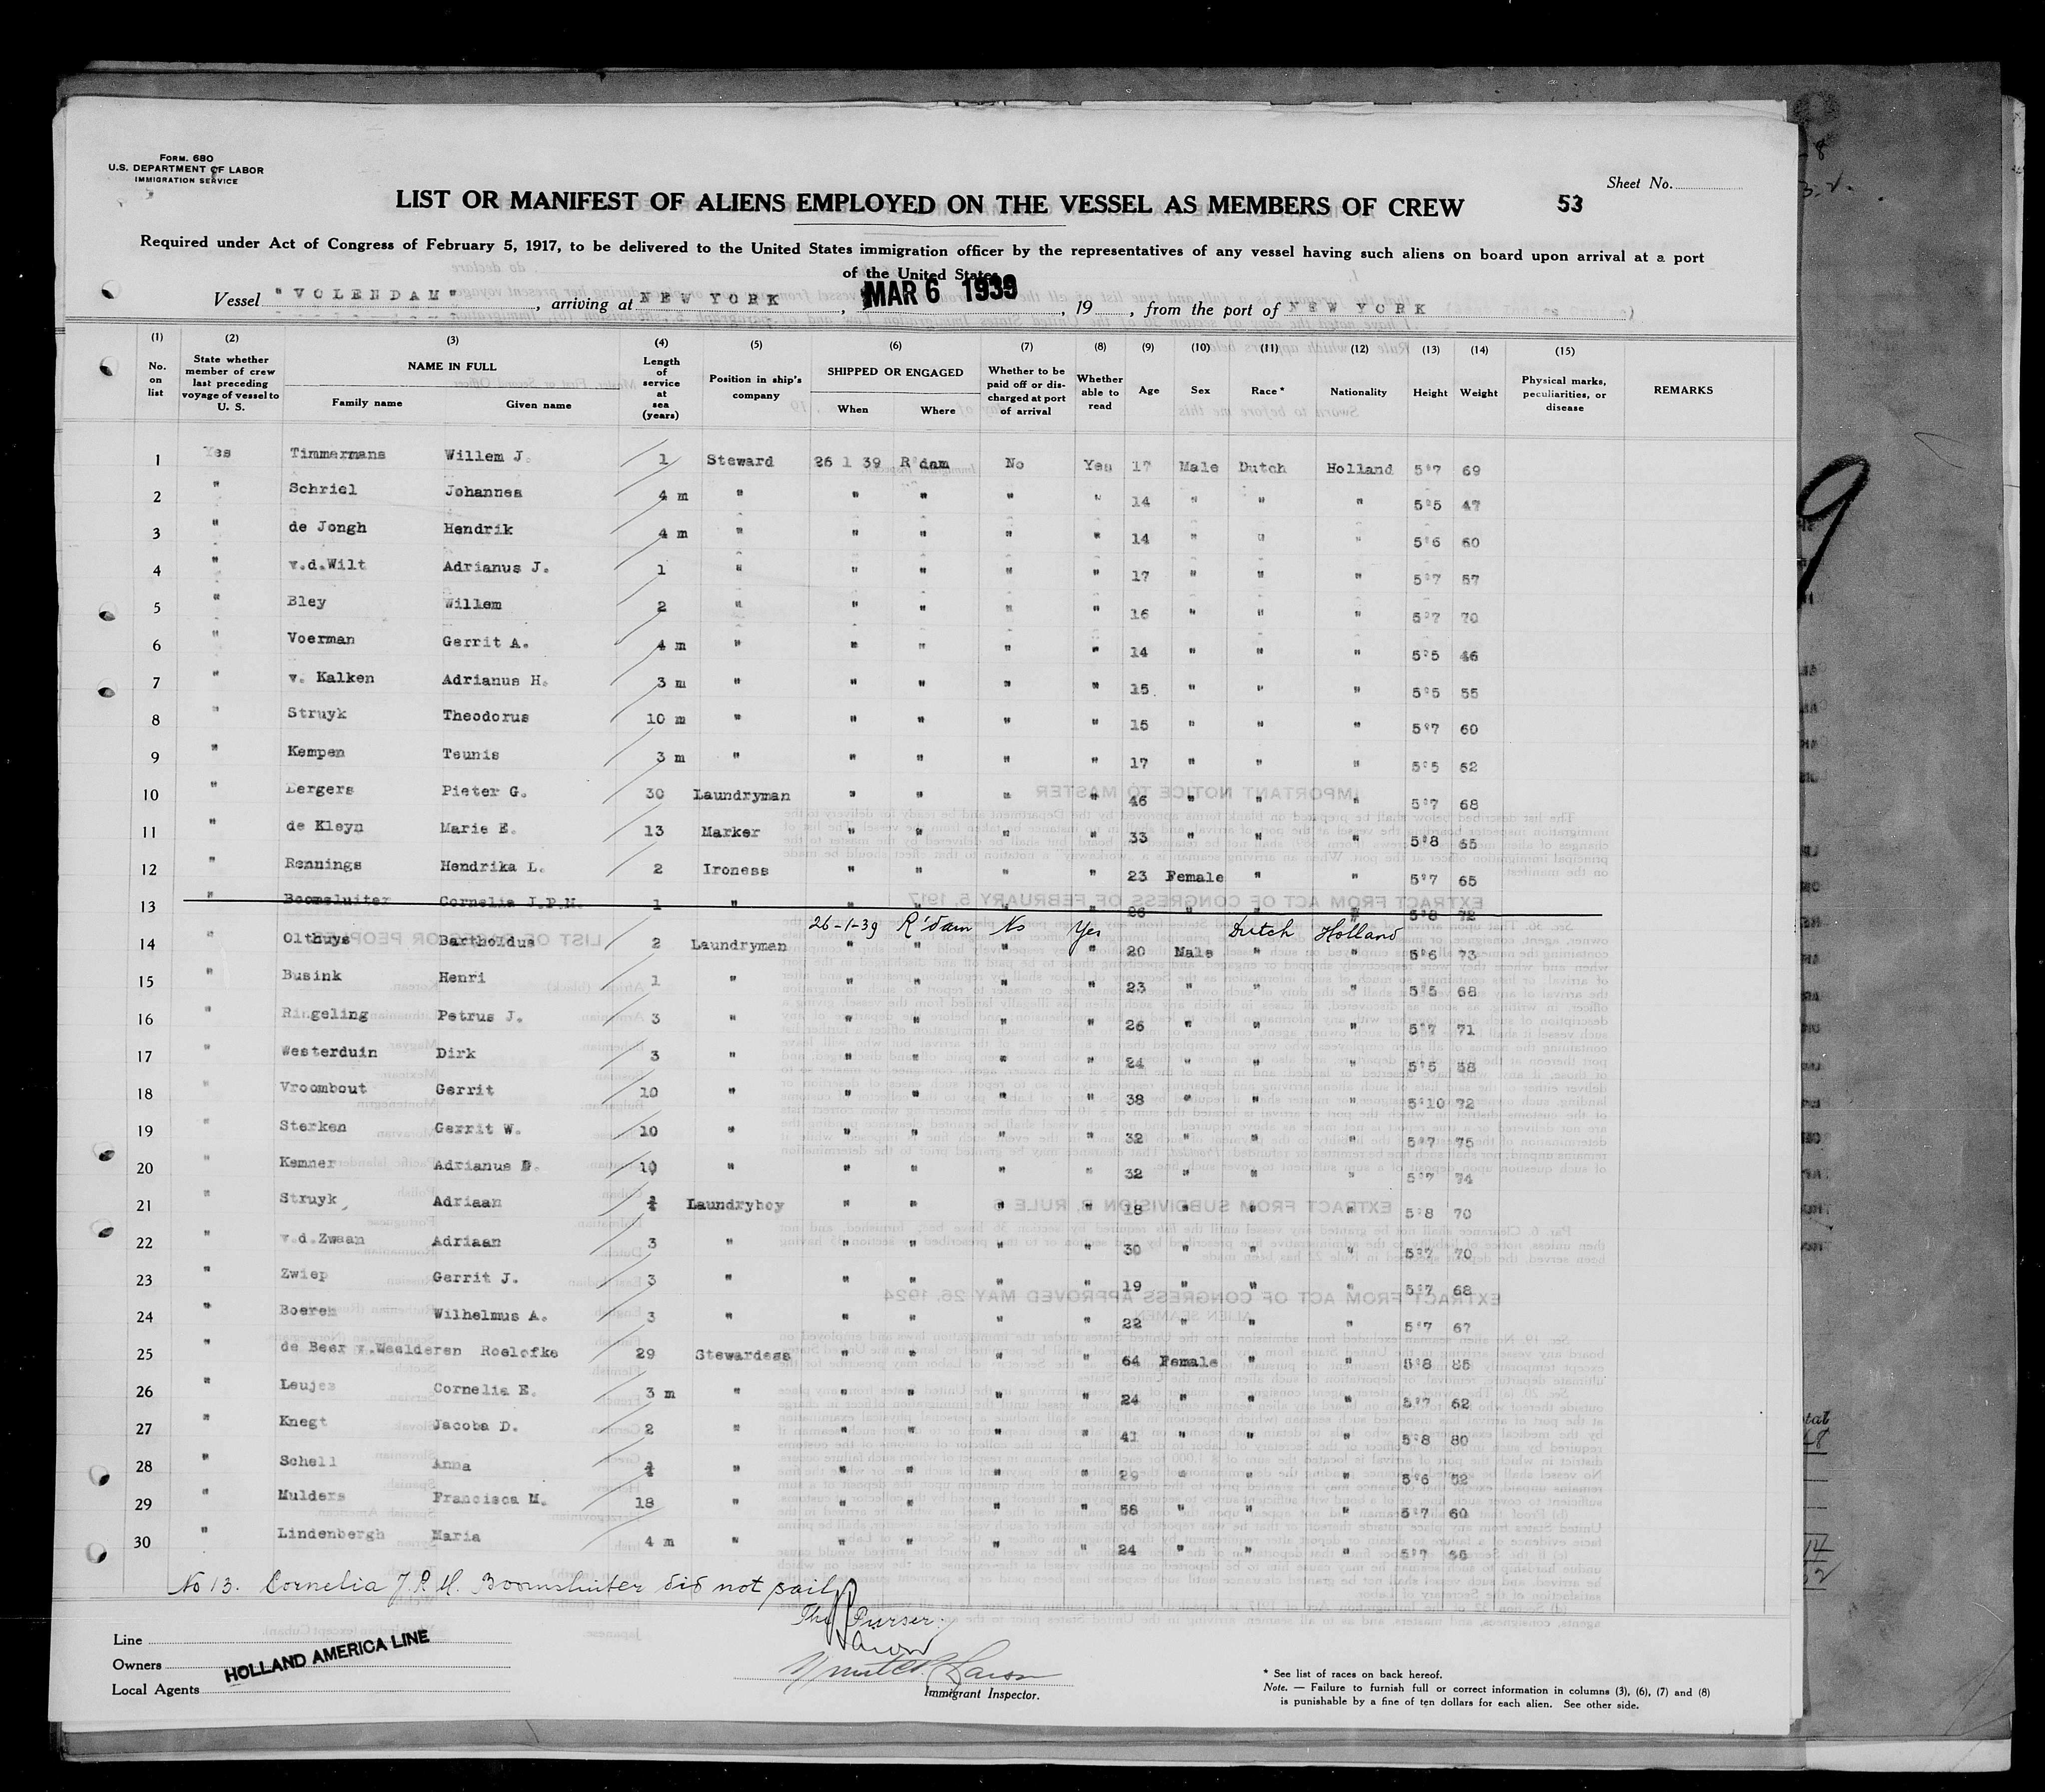 FORM. 680
U.S. DEPARTMENT OF LABOR
IMMIGRATION SERVICE
Sheet No.
LIST OR MANIFEST OF ALIENS EMPLOYED ON THE VESSEL AS MEMBERS OF CREW 53
Required under Act of Congress of February 5, 1917, to be delivered to the United States immigration officer by the representatives of any vessel having such aliens on board upon arrival at a port
of the United States
Vessel "VOLENDAM", arriving at NEW YORK, MAR 6 1939, 19, from the port of NEW YORK
(1) (2) (3) (4) (5) (6) (7) (8) (9) (10) (11) (12) (13) (14) (15)
No. on list State whether member of crew last preceding voyage of vessel to U. S. NAME IN FULL Family name Given name Length of service at sea (years) Position in ship's company SHIPPED OR ENGAGED When Where Whether to be paid off or discharged at port of arrival Whether able to read Age Sex Race * Nationality Height Weight Physical marks, peculiarities, or disease REMARKS
1 Yes Timmermans Willem J. 1 Steward 26 1 39 R'dam No Yes 17 Male Dutch Holland 5'7 69
2 " Schriel Johannes 4 m " " " " " 14 " " " 5'5 47
3 " de Jongh Hendrik 4 m " " " " " 14 " " " 5'6 60
4 " v.d.Wilt Adrianus J. 1 " " " " " 17 " " " 5'7 57
5 " Bley Willem 2 " " " " " 16 " " " 5'7 70
6 " Voerman Gerrit A. 4 m " " " " " 14 " " " 5'5 46
7 " v. Kalken Adrianus H. 3 m " " " " " 15 " " " 5'5 55
8 " Struyk Theodorus 10 m " " " " " 15 " " " 5'7 60
9 " Kempen Teunis 3 m " " " " " 17 " " " 5'5 62
10 " Lergers Pieter G. 30 Laundryman " " " " 46 " " " 5'7 68
11 " de Kleyn Marie E. 13 Marker " " " " 33 " " " 5'8 65
12 " Rennings Hendrika L. 2 Ironess " " " " 23 Female " " 5'7 65
13 " Boomsluiter Cornelia J.P.M. 1 " " " " " 26 " " " 5'8 72
26-1-39 R'dam No Yes Dutch Holland
14 " Olthuys Bartholdus 2 Laundryman " " " " 20 Male " " 5'6 73
15 " Busink Henri 1 " " " " " 23 " " " 5'5 68
16 " Ringeling Petrus J. 3 " " " " " 26 " " " 5'7 71
17 " Westerduin Dirk 3 " " " " " 24 " " " 5'5 58
18 " Vroombout Gerrit 10 " " " " " 38 " " " 5'10 72
19 " Sterken Gerrit W. 10 " " " " " 32 " " " 5'7 75
20 " Kemner Adrianus 10 " " " " " 32 " " " 5'7 74
21 " Struyk Adriaan Laundryboy " " " " 18 " " " 5'8 70
22 " v.d.Zwaan Adriaan 3 " " " " " 30 " " " 5'7 70
23 " Zwiep Gerrit J. 3 " " " " " 19 " " " 5'7 68
24 " Boeren Wilhelmus A. 3 " " " " " 22 " " " 5'7 67
25 " de Beer v.Waalderen Roelofke 29 Stewardess " " " " 64 Female " " 5'8 85
26 " Leujes Cornelia E. 3 m " " " " " 24 " " " 5'7 62
27 " Knegt Jacoba D. 2 " " " " " 41 " " " 5'8 80
28 " Schell Anna " " " " " 29 " " " 5'6 52
29 " Mulders Francisca M. 18 " " " " " 58 " " " 5'7 60
30 " Lindenbergh Maria 4 m " " " " " 24 " " " 5'7
No 13. Cornelia J. P. M. Boomsluiter did not sail
The Purser:
Line
Owners
Local Agents
HOLLAND AMERICA LINE
Immigrant Inspector.
* See list of races on back hereof.
Note. — Failure to furnish full or correct information in columns (3), (6), (7) and (8)
is punishable by a fine of ten dollars for each alien. See other side.